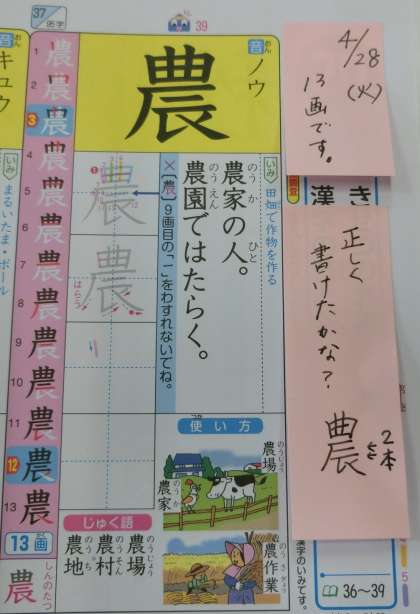 37
拓字
39
4/28
(火)
13画です。
正しく
書けたかな？
農
2本
き
漢
漢字のいみです。
36〜39
音
おん
ノウ
農
いみ
田畑で作物を作る
農家の人。
のう か ひと
農園ではたらく。
のう えん
×〔農〕9画目の「一」をわすれないでね。
農
農
はらう
使い方
つか かた
農場
のうじょう
農家
のうか
農作業
のう さ ぎょう
じゅく語
農場
のうじょう
農村
のうそん
農地
のう ち
1 農
2 農
3 農
4 農
5 農
6 農
7 農
8 農
9 農
10 農
11 農
12 農
13 農
13画
かく
農
しんのたつ
音
おん
キュウ
いみ
まるいたま・ボール